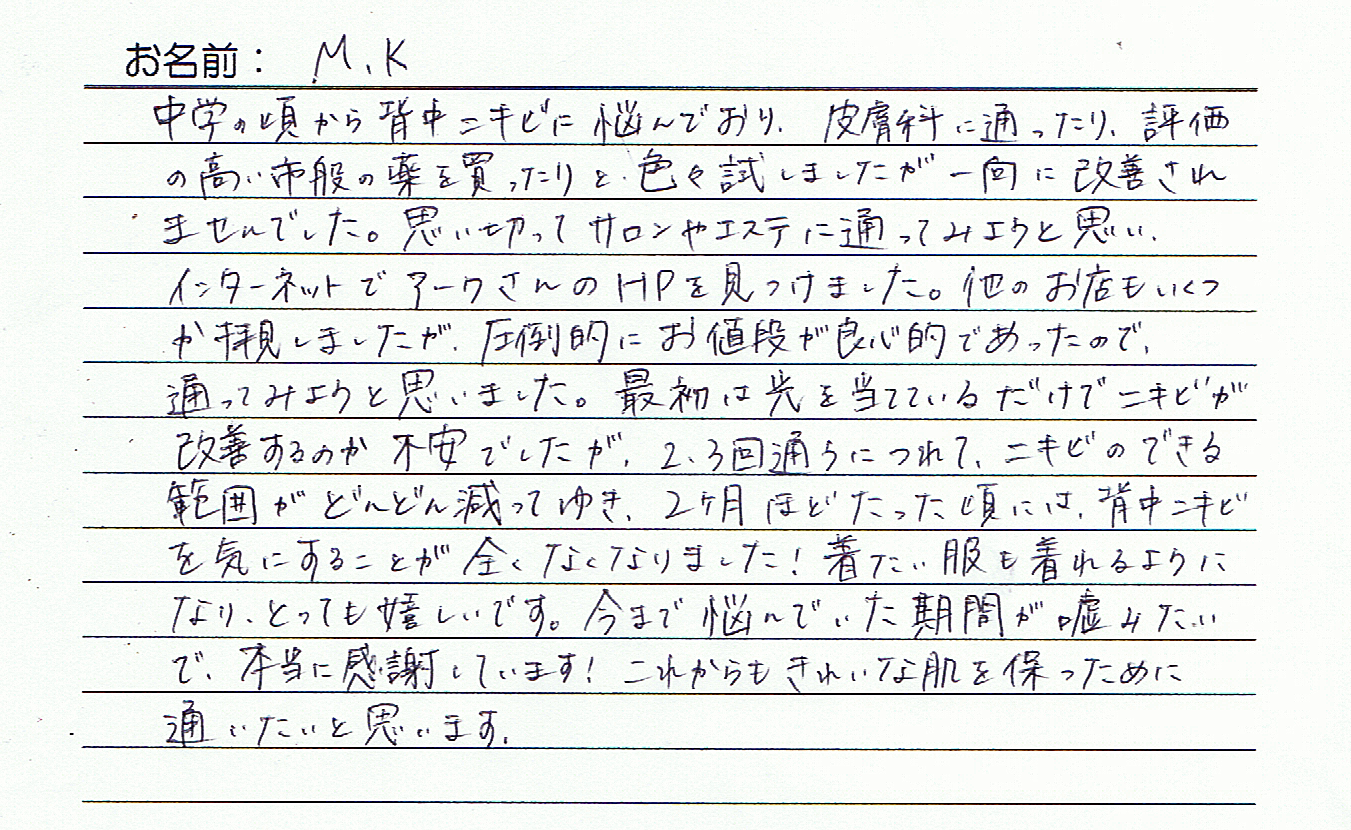 お名前： M.K
中学の頃から背中ニキビに悩んでおり、皮膚科に通ったり、評価
の高い市般の薬を買ったりと色々試しましたが一向に改善され
ませんでした。思い切ってサロンやエステに通ってみようと思い、
インターネットでアークさんのHPを見つけました。他のお店もいくつ
か拝見しましたが、圧倒的にお値段が良心的であったので、
通ってみようと思いました。最初は光を当てているだけでニキビが
改善するのか不安でしたが、2、3回通うにつれて、ニキビのできる
範囲がどんどん減ってゆき、2ヶ月ほどたった頃には、背中ニキビ
を気にすることが全くなくなりました！着たい服も着れるように
なり、とっても嬉しいです。今まで悩んでいた期間が嘘みたい
で、本当に感謝しています！これからもきれいな肌を保つために
通いたいと思います。